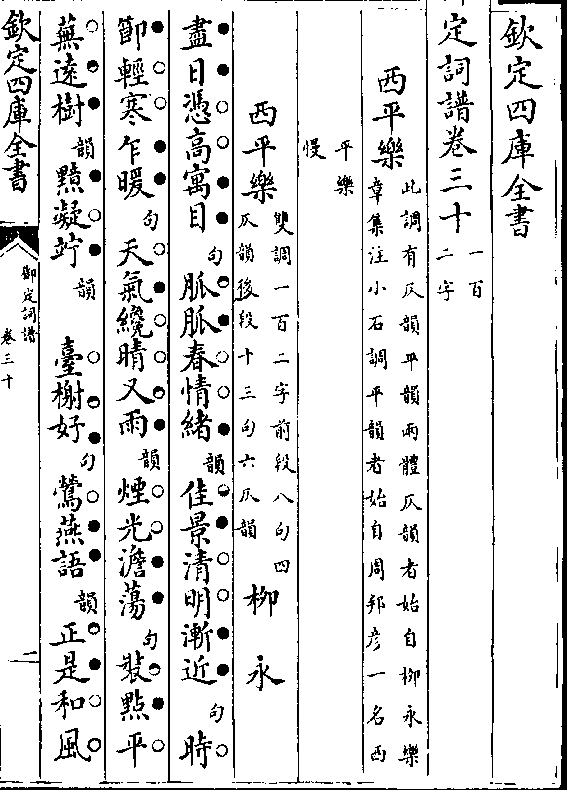 欽定四庫全書
定詞譜卷三十
一百
二字
西平樂
此調有仄韻平韻兩體仄韻者始自柳永樂
章集注小石調平韻者始自周邦彦一名西
平樂
慢
西平樂
雙調一百二字前段八句四
仄韻後段十三句六仄韻
柳永
盡日憑高寓目句脈脈春情緒韻佳景清明漸近句時
節輕寒乍暖句天氣纔晴又雨韻煙光澹蕩句裝點平
蕪遠樹韻黯凝竚韻臺榭好句鶯燕語韻正是和風
欽定四庫全書
御定詞譜
卷三十
二